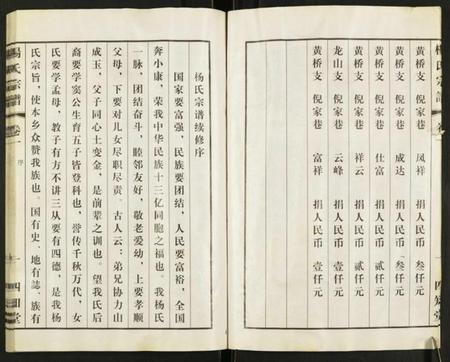 楊氏宗譜
黄桥支 倪家巷 凤祥 捐人民币 叁仟元
黄桥支 倪家巷 成达 捐人民币 叁仟元
黄桥支 倪家巷 仕富 捐人民币 贰仟元
黄桥支 倪家巷 祥云 捐人民币 贰仟元
龙山支 倪家巷 云峰 捐人民币 壹仟元
黄桥支 倪家巷 富祥 捐人民币 壹仟元
杨氏宗谱续修序
国家要富强，民族要团结，人民要富裕，全国
奔小康，荣我中华民族十三亿同胞之福也。我杨氏
一脉，团结奋斗，睦邻友好，敬老爱幼，上要孝顺
父母，下要对儿女尽职尽责。古人云：弟兄协力山
成玉，父子同心土变金，是前辈之训也。望我氏后
裔要学窦公生育五子皆登科也，誉传千秋万代，女
氏要学孟母，教子有方不讲三从要有四德，是我杨
氏宗旨，使本乡众赞我族也。国有史、地有誌、族有
楊氏宗譜
卷一
序
一
四知堂